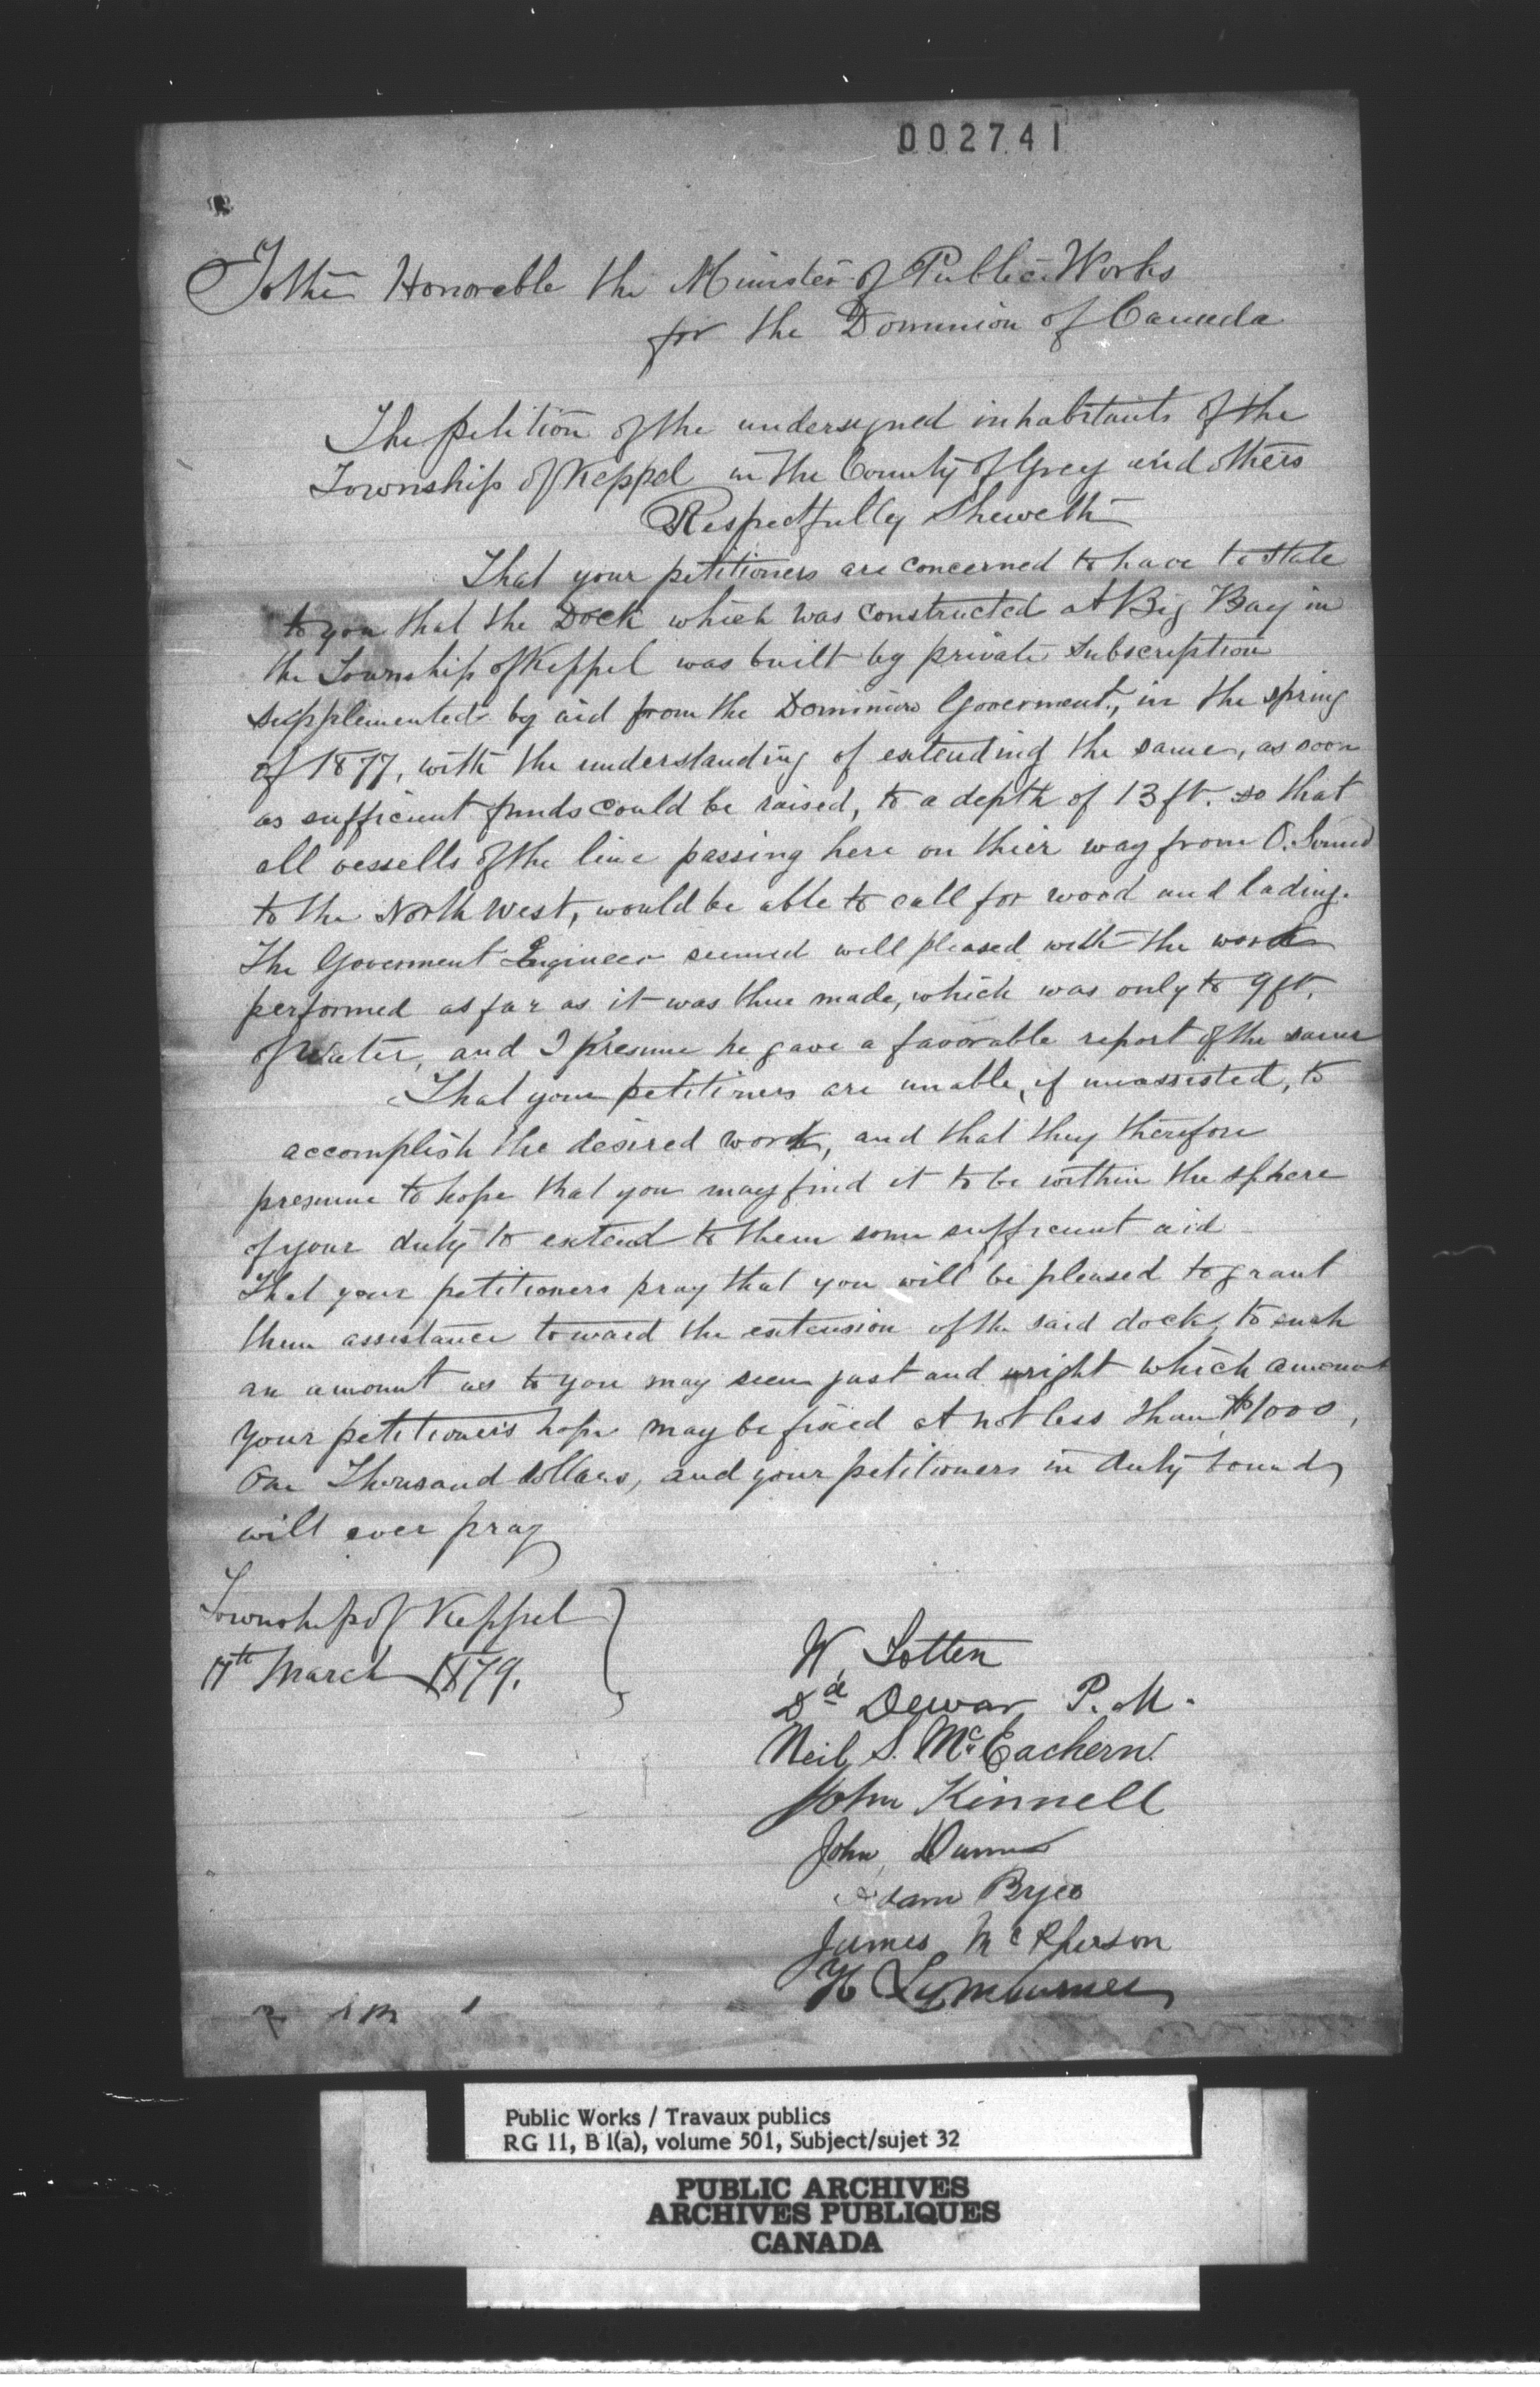 002741
To the Honorable the Minister of Public Works
for the Dominion of Canada
The petition of the undersigned inhabitants of the
Township of Keppel in the County of Grey and others
Respectfully Sheweth
That your petitioners are concerned to have to state
to you that the Dock which was constructed at Big Bay in
the Township of Keppel was built by private Subscription
supplemented by aid from the Dominion Goverment, in the spring
of 1877, with the understanding of extending the same, as soon
as sufficient funds could be raised, to a depth of 13 ft. so that
all vessells of the line passing here on thier way from O. Sound
to the North West, would be able to call for wood and lading.
The Goverment Engineer seemed well pleased with the work
performed as far as it was then made, which was only to 9 ft.
of Water, and I presume he gave a favorable report of the same
That your petitioners are unable, if unassisted, to
accomplish the desired work, and that they therefore
presume to hope that you may find it to be within the sphere
of your duty to extend to them some sufficient aid
That your petitioners pray that you will be pleased to grant
them assistance toward the extension of the said dock, to such
an amount as to you may seem just and wright which amount
your petitioners hope may be fixed at not less than $1000,
One Thousand dollars, and your petitioners in duty bound
will ever pray
Township of Keppel
17th March 1879.
W. Totten
Dd Dewar P. M.
Neil S. McEachern
John Kinnell
John
Adam Bryce
James McPherson
H Lymburner
Public Works / Travaux publics
RG 11, B 1(a), volume 501, Subject/sujet 32
PUBLIC ARCHIVES
ARCHIVES PUBLIQUES
CANADA